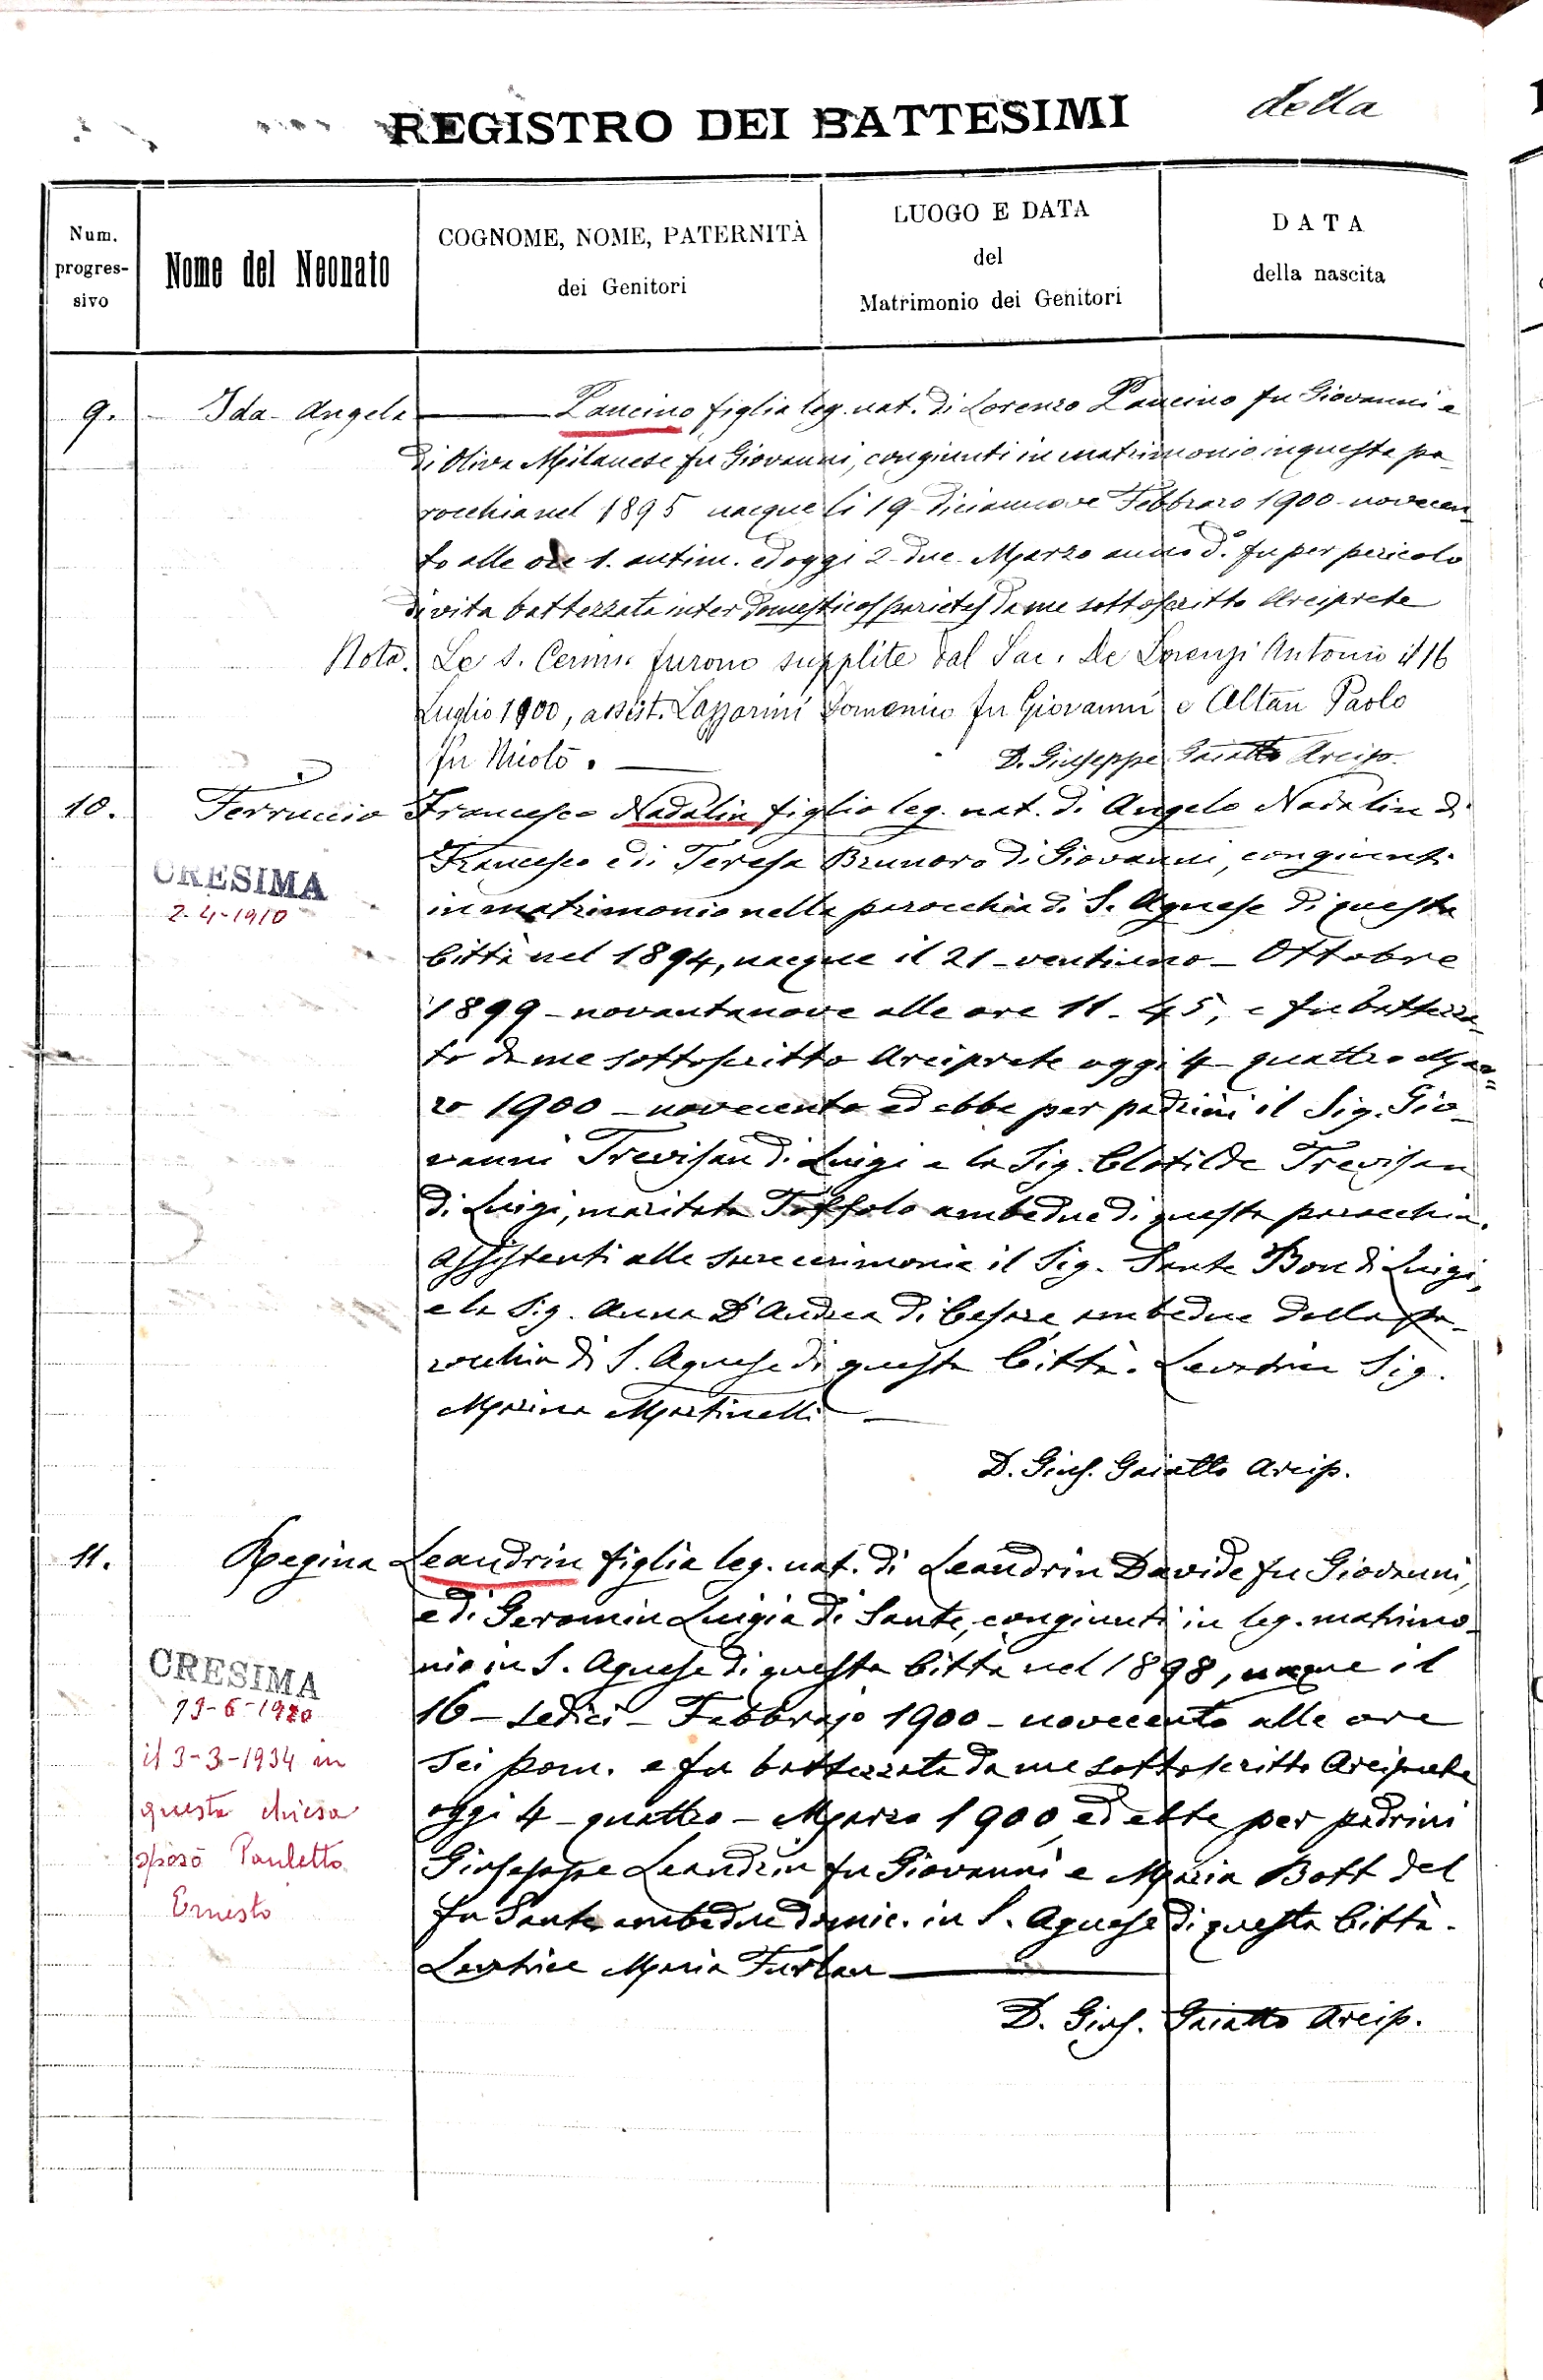 REGISTRO DEI BATTESIMI della
Num. progres- sivo
Nome del Neonato
COGNOME, NOME, PATERNITÀ dei Genitori
LUOGO E DATA del Matrimonio dei Genitori
DATA della nascita
9. Ida Angela Pancino figlia leg. nat. di Lorenzo Pancino fu Giovanni e
di Oliva Milanese fu Giovanni, congiunti in matrimonio in questa pa-
rocchia nel 1895 nacque li 19 diciannove Febbraro 1900 novecen-
to alle ore 1. antim. ed oggi 2 due Marzo anno do. fu per pericolo
di vita battezzata inter domesticos parietes da me sottoscritto Arciprete
Nota. Le s. Cerim. furono supplite dal Sac. De Lorenzi Antonio il 16
Luglio 1900, assist. Lazzarini Domenico fu Giovanni e Altan Paolo
fu Nicolò.
D. Giuseppe Gaiatto Arcip.
10. Ferruccio Francesco Nadalin figlio leg. nat. di Angelo Nadalin di
Francesco e di Teresa Brunoro di Giovanni, congiunti
CRESIMA
2-4-1910
in matrimonio nella parocchia di S. Agnese di questa
Città nel 1894, nacque il 21 - ventiuno - Ottobre
1899 - novantanove alle ore 11 - 45, e fu battezza-
to da me sottoscritto Arciprete oggi 4 quattro Mar=
zo 1900 - novecento ed ebbe per padrini il Sig. Gio-
vanni Trevisan di Luigi e la Sig. Clotilde Trevisan
di Luigi, maritata Toffolo ambedue di questa parocchia.
Assistenti alle sacre cerimonie il Sig. Sante Bon di Luigi,
e la Sig. Anna D'Andrea di Cesare, ambedue della pa-
rocchia di S. Agnese di questa Città. Levatrice Sig.
Marina Martinelli
D. Gius. Gaiatto Arcip.
11. Regina Leandrin figlia leg. nat. di Leandrin Davide fu Giovanni,
e di Geromin Luigia di Sante, congiunti in leg. matrimo-
nio in S. Agnese di questa Città nel 1898, nacque il
16 - sedici - Febbrajo 1900 - novecento alle ore
sei pom. e fu battezzata da me sottoscritto Arciprete
oggi 4 - quattro - Marzo 1900, ed ebbe per padrini
Giuseppe Leandrin fu Giovanni e Maria Bott del
fu Sante ambedue domic. in S. Agnese di questa Città.
Levatrice Maria Furlan
CRESIMA
il 3-3-1934 in
questa chiesa
sposò Pauletto
Ernesto
D. Gius. Gaiatto Arcip.